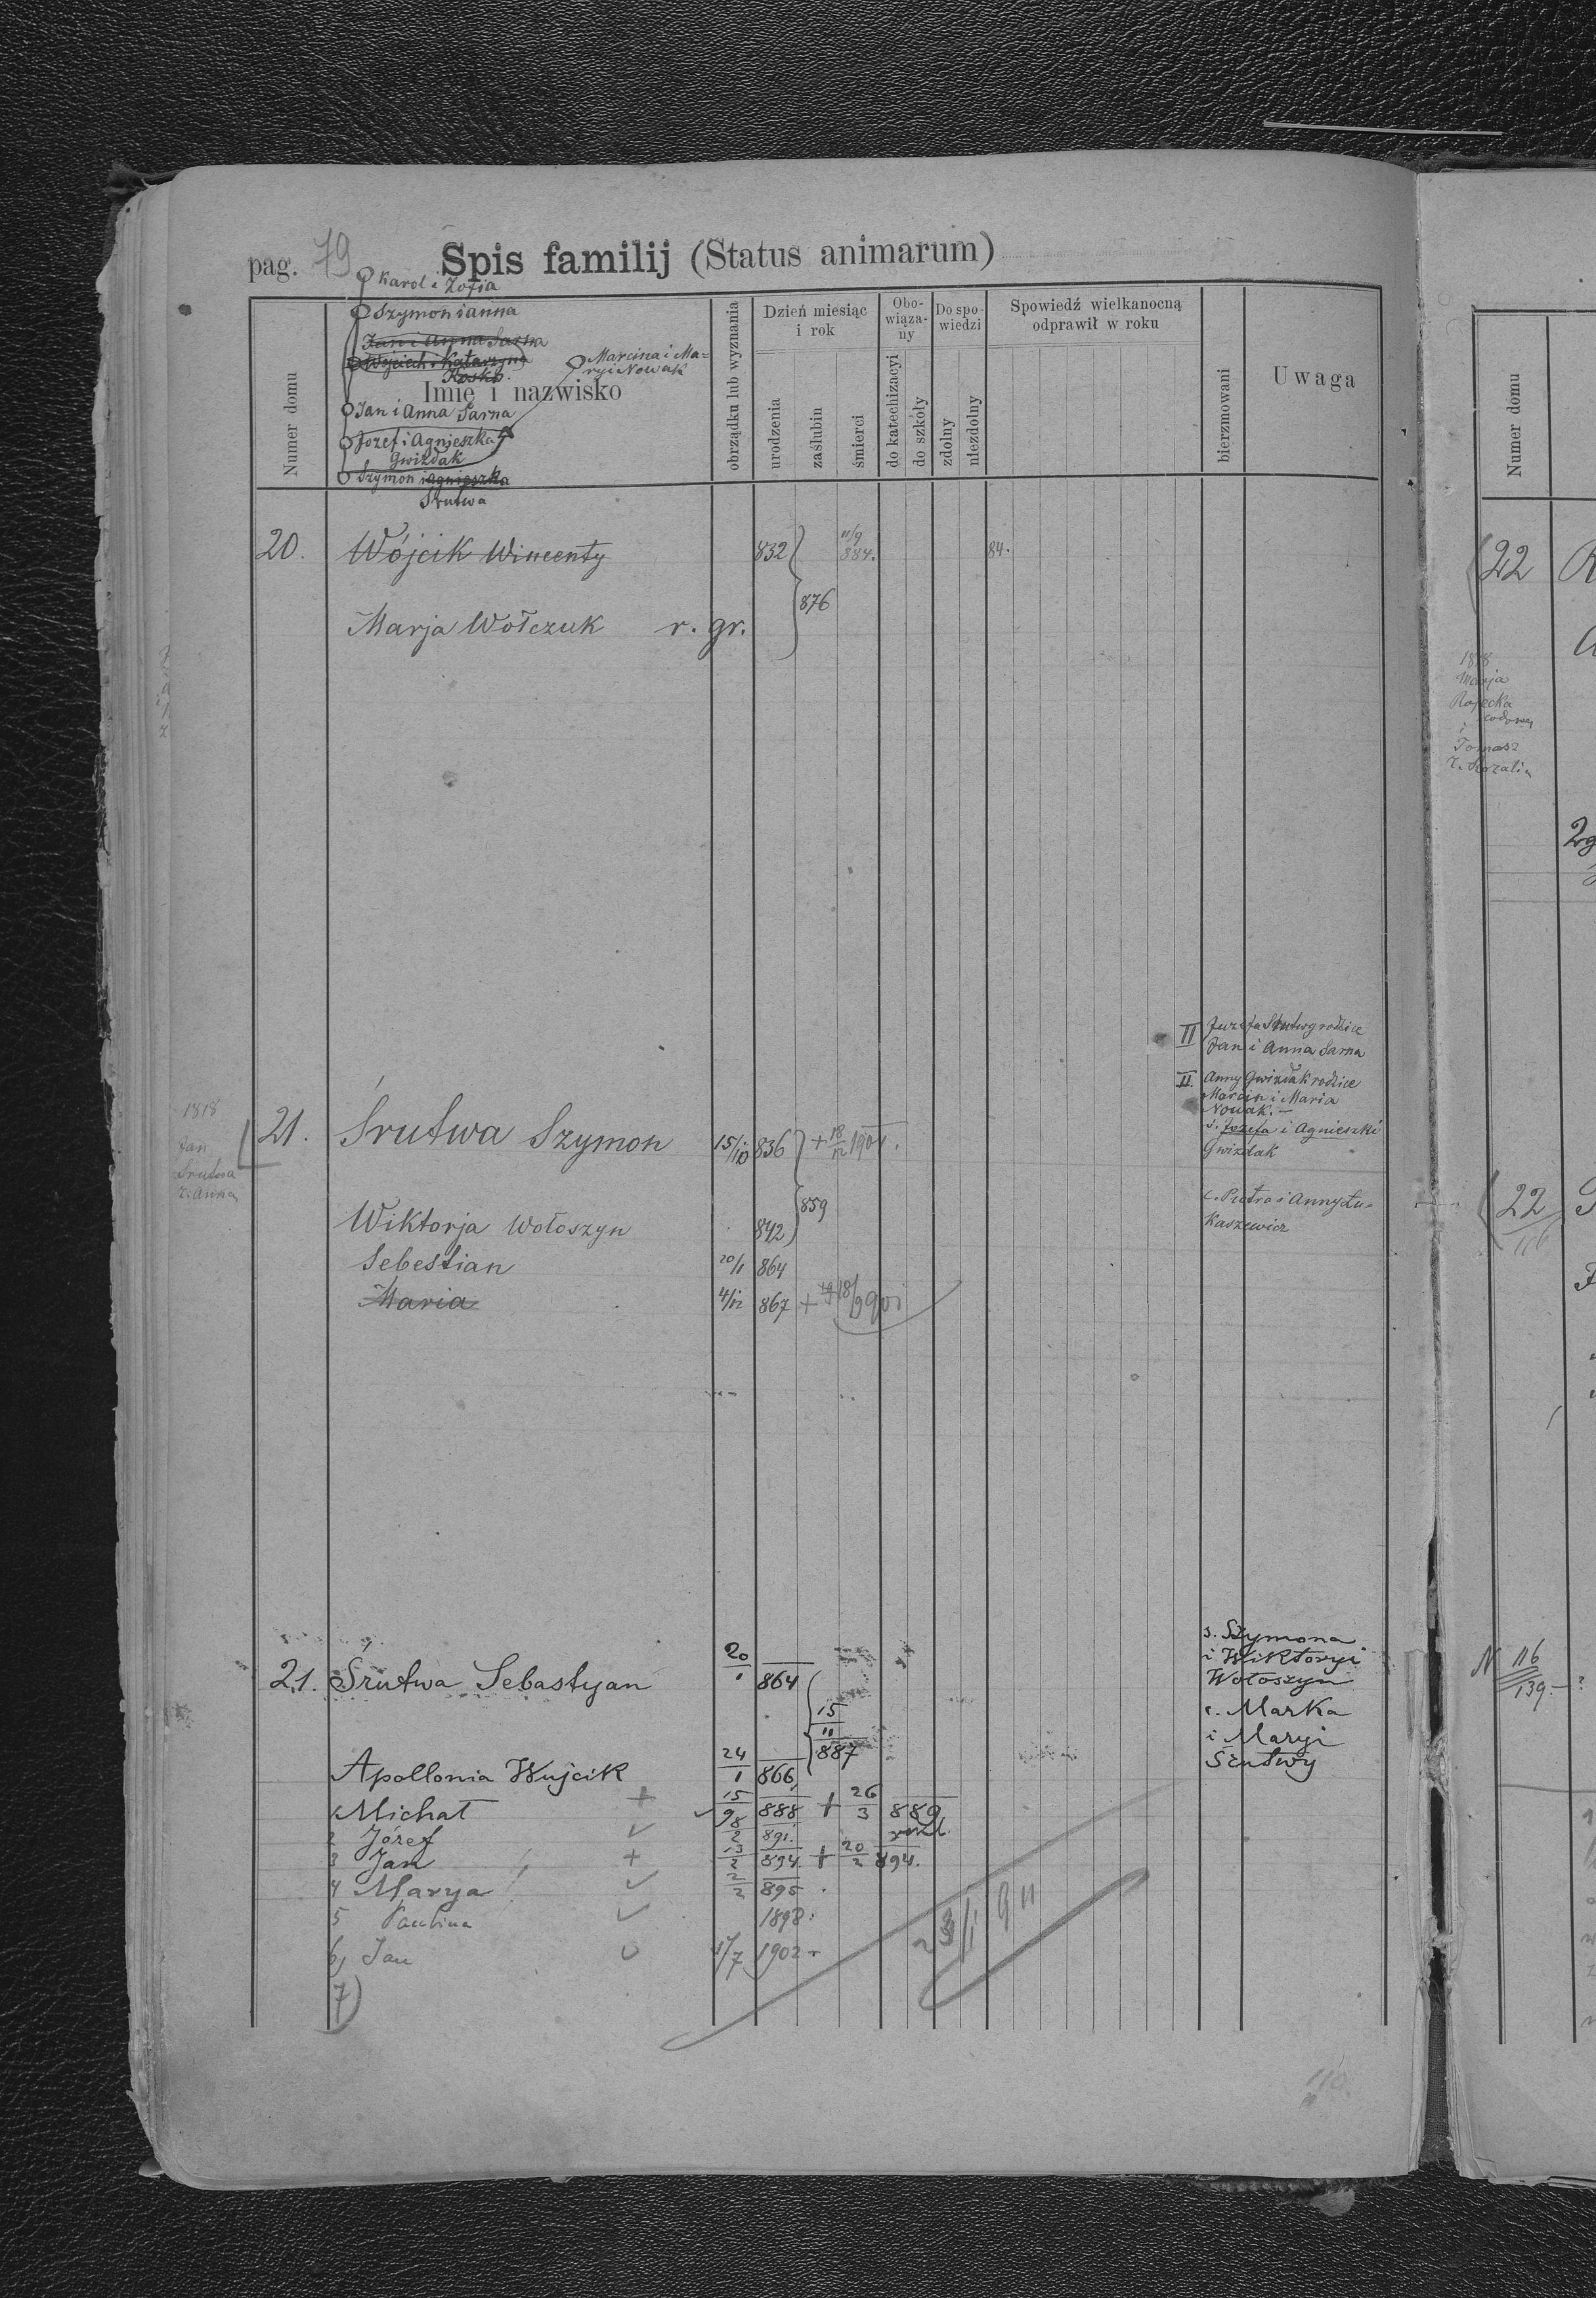 pag. 79 Spis familij (Status animarum)
Karol i Zofia
Szymon i Anna
Jan i Anna Sarna
Wojciech i Katarzyna
Marcina i Ma=
ryi Nowak
Numer domu
Imię i nazwisko
obrządku lub wyznania
Dzień miesiąc i rok
urodzenia
zaślubin
śmierci
Obo-wiąza-ny
do katechizacyi
do szkóły
Do spo-wiedzi
zdolny
niezdolny
Spowiedź wielkanocną odprawił w roku
bierzmowani
Uwaga
Jan i Anna Sarna
Józef i Agnieszka
Gwizdak
Szymon i Agnieszka
Srutwa
20. Wójcik Wincenty 832 11/9 884. 84.
876
Marja Wołczuk r. gr.
II Juzefa Srutwy rodzice
Jan i Anna Sarna
II. Anny Gwizdak rodzice
Marcin i Maria
Nowak. —
1818
Jan
Srutwa
ż. Anna
21. Śrutwa Szymon 15/10 836 + 18/12 1901.
s. Józefa i Agnieszki
Gwizdak
859
Wiktorja Wołoszyn 842
c. Piotra i Anny Łu=
kaszewicz
Sebestian 20/1 864
Maria 4/12 867 + 18/9 901
21. Śrutwa Sebastyan 20/1 864
s. Szymona
i Wiktoryi
Wołoszyn
15/11 887
Apollonia Wujcik 24/1 866
c. Marka
i Maryi
Srutwy
1 Michał + 15/9 888 + 26/3 889
2 Józef 8/2 891.
3 Jan + 13/2 894. + 20/2 894.
4 Marya 2/2 895.
5 Paulina 1898.
6) Jan 17/7 1902
23/1 911
7)
110.
Numer domu
22
1818
Marja
Tomasz
22
116
N 116
139.